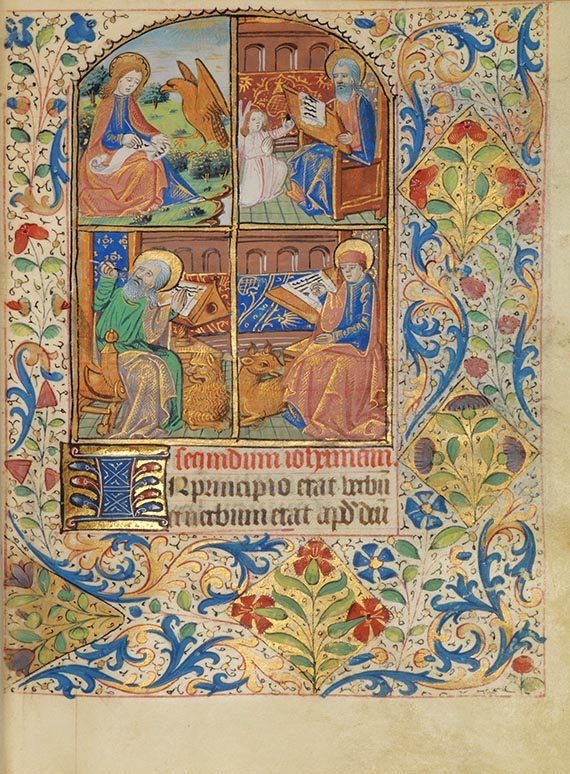 secundum iohannem.
IN principio erat verbū
et verbum erat apd deū